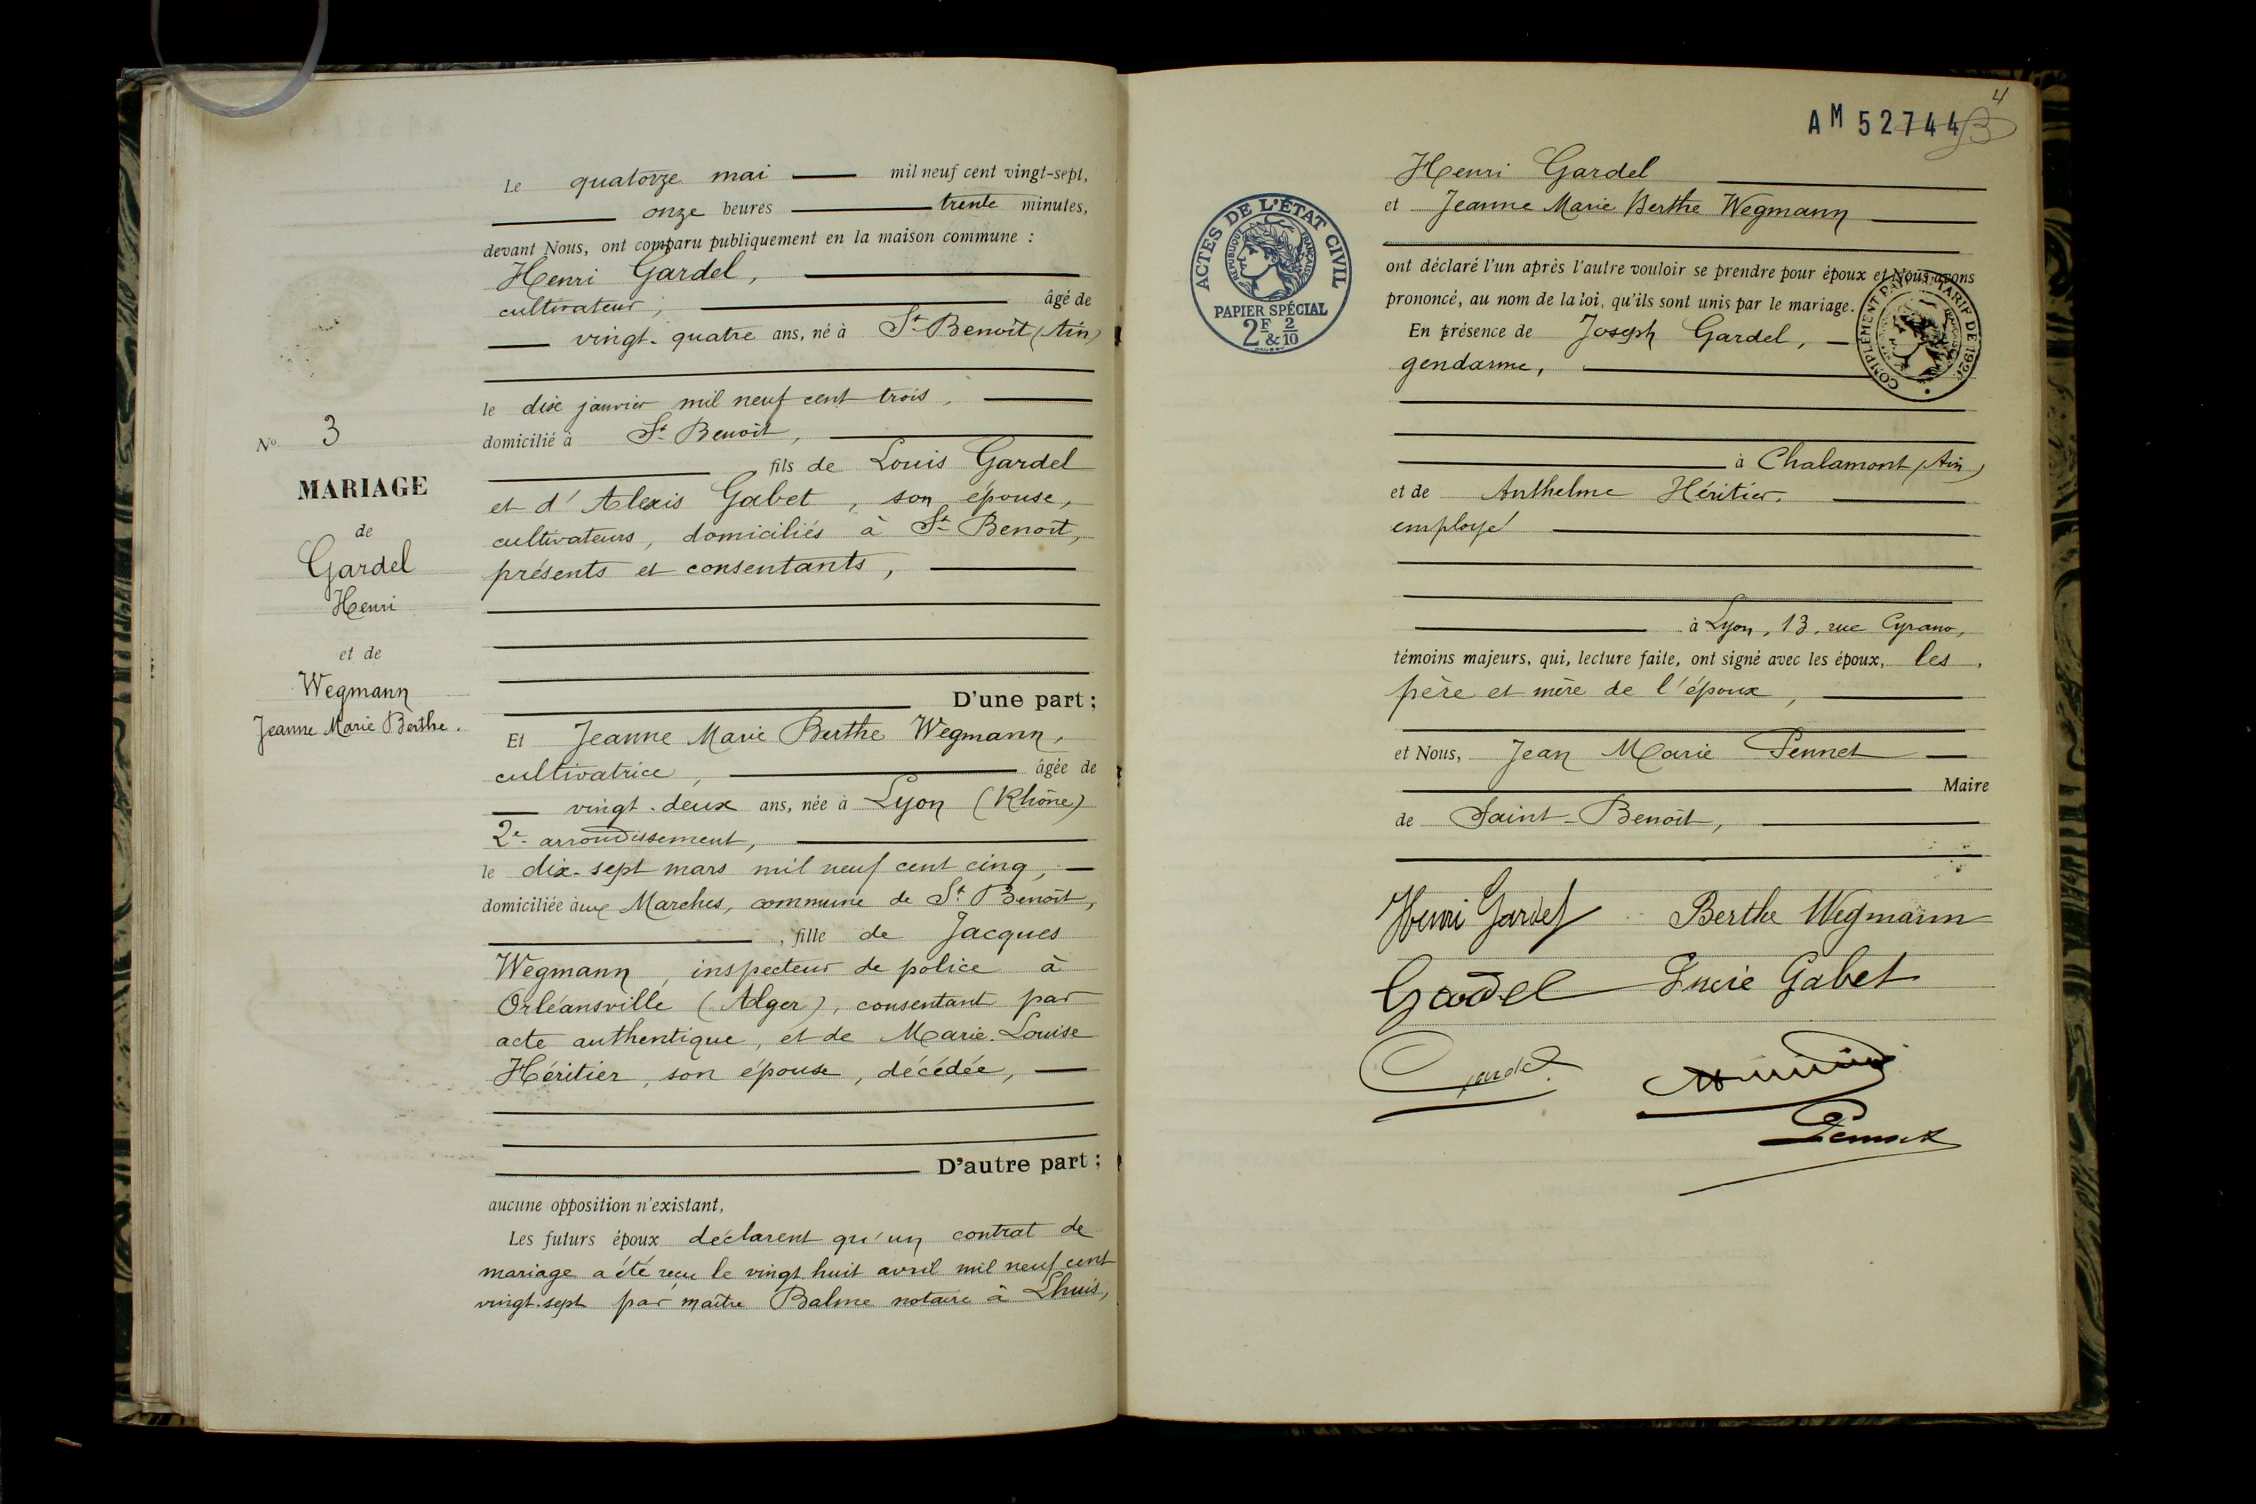 Le quatorze mai mil neuf cent vingt-sept,
onze heures trente minutes,
devant Nous, ont comparu publiquement en la maison commune :
Henri Gardel,
cultivateur, âgé de
vingt-quatre ans, né à St Benoît (Ain)
le dix janvier mil neuf cent trois,
domicilié à St Benoît,
fils de Louis Gardel
et d'Alexis Gabet, son épouse,
cultivateurs, domiciliés à St Benoît,
présents et consentants,
D'une part ;
No 3
MARIAGE
de
Gardel
Henri
et de
Wegmann
Jeanne Marie Berthe.
Et Jeanne Marie Berthe Wegmann,
cultivatrice, âgée de
vingt-deux ans, née à Lyon (Rhône)
2e arrondissement,
le dix-sept mars mil neuf cent cinq,
domiciliée aux Marches, commune de St Benoît,
, fille de Jacques
Wegmann, inspecteur de police à
Orléansville (Alger), consentant par
acte authentique, et de Marie-Louise
Héritier, son épouse, décédée,
D'autre part ;
aucune opposition n'existant,
Les futurs époux déclarent qu'un contrat de
mariage a été reçu le vingt huit avril mil neuf cent
vingt-sept par maître Balme notaire à Lhuis,
4
AM 52744
Henri Gardel
et Jeanne Marie Berthe Wegmann
ont déclaré l'un après l'autre vouloir se prendre pour époux et Nous avons
prononcé, au nom de la loi, qu'ils sont unis par le mariage.
ACTES DE L'ÉTAT CIVIL
RÉPUBLIQUE FRANÇAISE
PAPIER SPÉCIAL
2F & 2/10
COMPLÉMENT PAYÉ TARIF DE 1926
En présence de Joseph Gardel,
gendarme,
à Chalamont (Ain)
et de Anthelme Héritier,
employé
à Lyon, 13, rue Cyrano,
témoins majeurs, qui, lecture faite, ont signé avec les époux, les
père et mère de l'époux,
et Nous, Jean Marie Pennet
Maire
de Saint-Benoît,
Henri Gardel Berthe Wegmann
Gardel Lucie Gabet
Gardel
Pennet